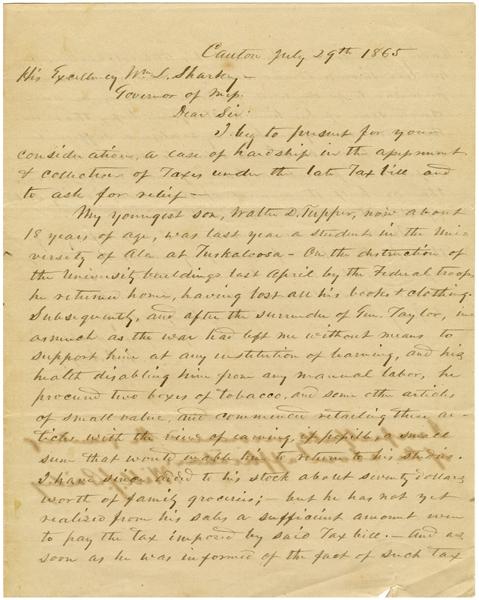 Canton July 29th 1865
His Excellency Wm L. Sharkey -
Governor of Mip.
Dear Sir:
I beg to present for your
consideration, a case of hardship in the assessment
& collection of Taxes under the late Tax bill and
to ask for relief -
My youngest son, Walter D. Tupper, now about
18 years of age, was last year a student in the Uni-
versity of Ala at Tuskaloosa - On the destruction of
the University buildings last April by the Federal troops
he returned home, having lost all his books & clothing.
Subsequently, and after the surrender of Gen. Taylor, in-
asmuch as the war had left me without means to
support him at any institution of learning, and his
health disabling him from any manual labor, he
procured two boxes of tobacco, and some other articles
of small value, and commenced retailing these ar-
ticles with the view of earning, if possible, a small
sum that would enable him to return to his studies.
I have since added to his stock about seventy dollars
worth of family groceries; - but he has not yet
realized from his sales a sufficient amount even
to pay the tax imposed by said Tax bill. - And as
soon as he was informed of the fact of such tax